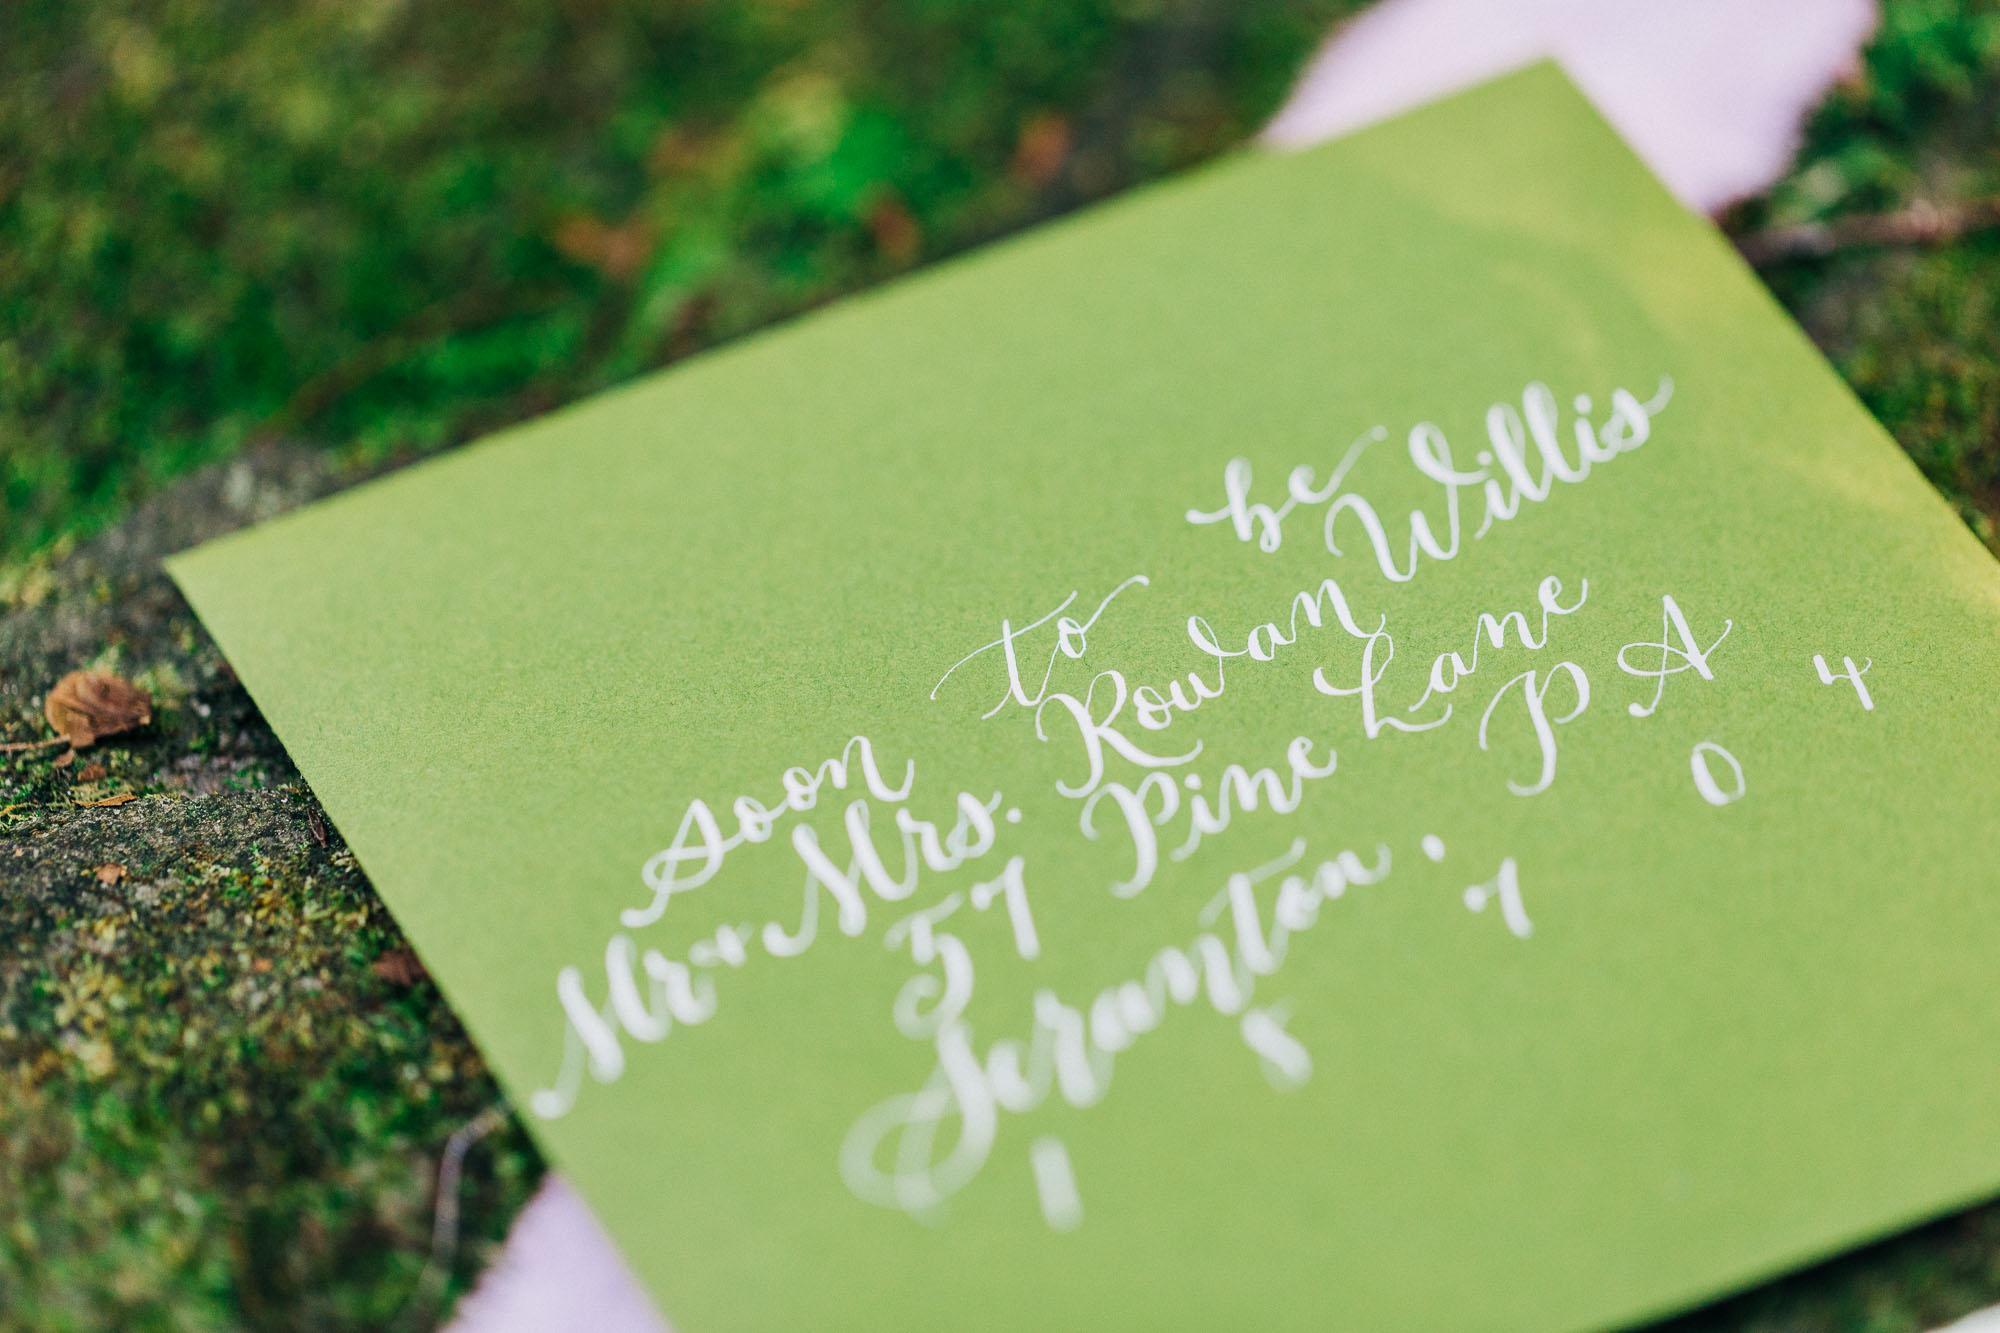 soon to be
Mr + Mrs. Rowan Willis
57 Pine Lane
Scranton, PA
1 8 7 0 4